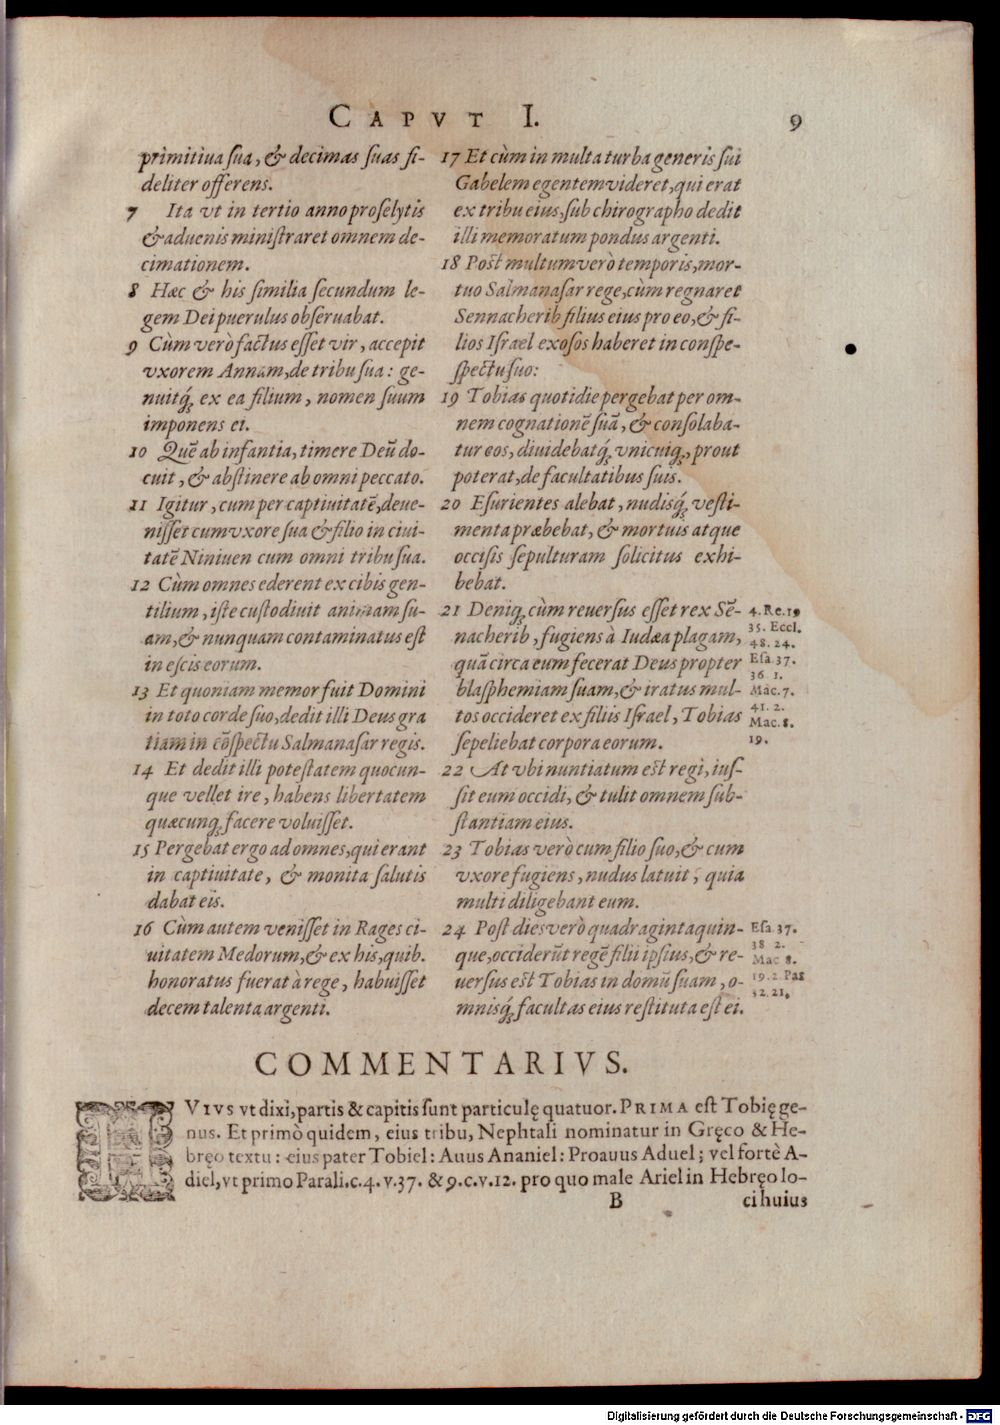 CAPVT I.
9
primitiua sua, & decimas suas fi-
deliter offerens.
7 Ita vt in tertio anno proselytis
& aduenis ministraret omnem de-
cimationem.
8 Hæc & his similia secundum le-
gem Dei puerulus obseruabat.
9 Cùm verò factus esset vir, accepit
vxorem Annam, de tribu sua: ge-
nuitq́; ex ea filium, nomen suum
imponens ei.
10 Quē ab infantia, timere Deū do-
cuit, & abstinere ab omni peccato.
11 Igitur, cum per captiuitatē, deue-
nisset cum vxore sua & filio in ciui-
tatē Niniuen cum omni tribu sua.
12 Cùm omnes ederent ex cibis gen-
tilium, iste custodiuit animam su-
am, & nunquam contaminatus est
in escis eorum.
13 Et quoniam memor fuit Domini
in toto corde suo, dedit illi Deus gra
tiam in cōspectu Salmanasar regis.
14 Et dedit illi potestatem quocun-
que vellet ire, habens libertatem
quæcunq; facere voluisset.
15 Pergebat ergo ad omnes, qui erant
in captiuitate, & monita salutis
dabat eis.
16 Cùm autem venisset in Rages ci-
uitatem Medorum, & ex his, quib.
honoratus fuerat à rege, habuisset
decem talenta argenti.
17 Et cùm in multa turba generis sui
Gabelem egentem videret, qui erat
ex tribu eius, sub chirographo dedit
illi memoratum pondus argenti.
18 Post multum verò temporis, mor-
tuo Salmanasar rege, cùm regnaret
Sennacherib filius eius pro eo, & fi-
lios Israel exosos haberet in conspe-
spectu suo:
19 Tobias quotidie pergebat per om-
nem cognationē suā, & consolaba-
tur eos, diuidebatq́; vnicuiq;, prout
poterat, de facultatibus suis.
20 Esurientes alebat, nudisq́; vesti-
menta præbebat, & mortuis atque
occisis sepulturam solicitus exhi-
bebat.
21 Deniq; cùm reuersus esset rex Sē-
nacherib, fugiens à Iudæa plagam,
quā circa eum fecerat Deus propter
blasphemiam suam, & iratus mul-
tos occideret ex filiis Israel, Tobias
sepeliebat corpora eorum.
4. Re. 19
35. Eccl.
48. 24.
Esa. 37.
36 1.
Mac. 7.
41. 2.
Mac. 8.
19.
22 At vbi nuntiatum est regi, ius-
sit eum occidi, & tulit omnem sub-
stantiam eius.
23 Tobias verò cum filio suo, & cum
vxore fugiens, nudus latuit, quia
multi diligebant eum.
24 Post dies verò quadraginta quin-
que, occiderūt regē filii ipsius, & re-
uersus est Tobias in domū suam, o-
mnisq́; facultas eius restituta est ei.
Esa. 37.
38 2.
Mac 8.
19. 2. Par
32. 21.
COMMENTARIVS.
HVIVS vt dixi, partis & capitis sunt particulę quatuor. PRIMA est Tobię ge-
nus. Et primò quidem, eius tribu, Nephtali nominatur in Gręco & He-
bręo textu: eius pater Tobiel: Auus Ananiel: Proauus Aduel; vel fortè A-
diel, vt primo Parali. c. 4. v. 37. & 9. c. v. 12. pro quo male Ariel in Hebręo lo-
B
ci huius
Digitalisierung gefördert durch die Deutsche Forschungsgemeinschaft - DFG